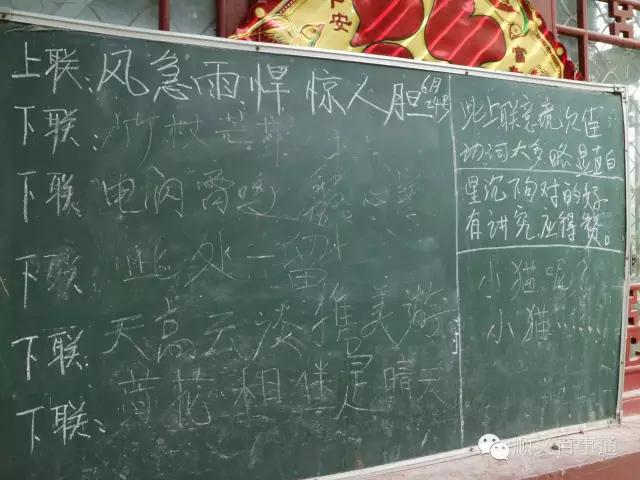 安 富
上联:风急雨悍 惊人胆 6月24号
下联:竹杖芒鞋
下联 电闪雷
下联: 此处一留
下联: 天高云淡携美
下联: 昔花相伴是晴天
此上联意境欠佳
动词太多略显直白
星沉下句对的好
有讲究应得赞。
小猫呢?
小猫……
顺义百事通